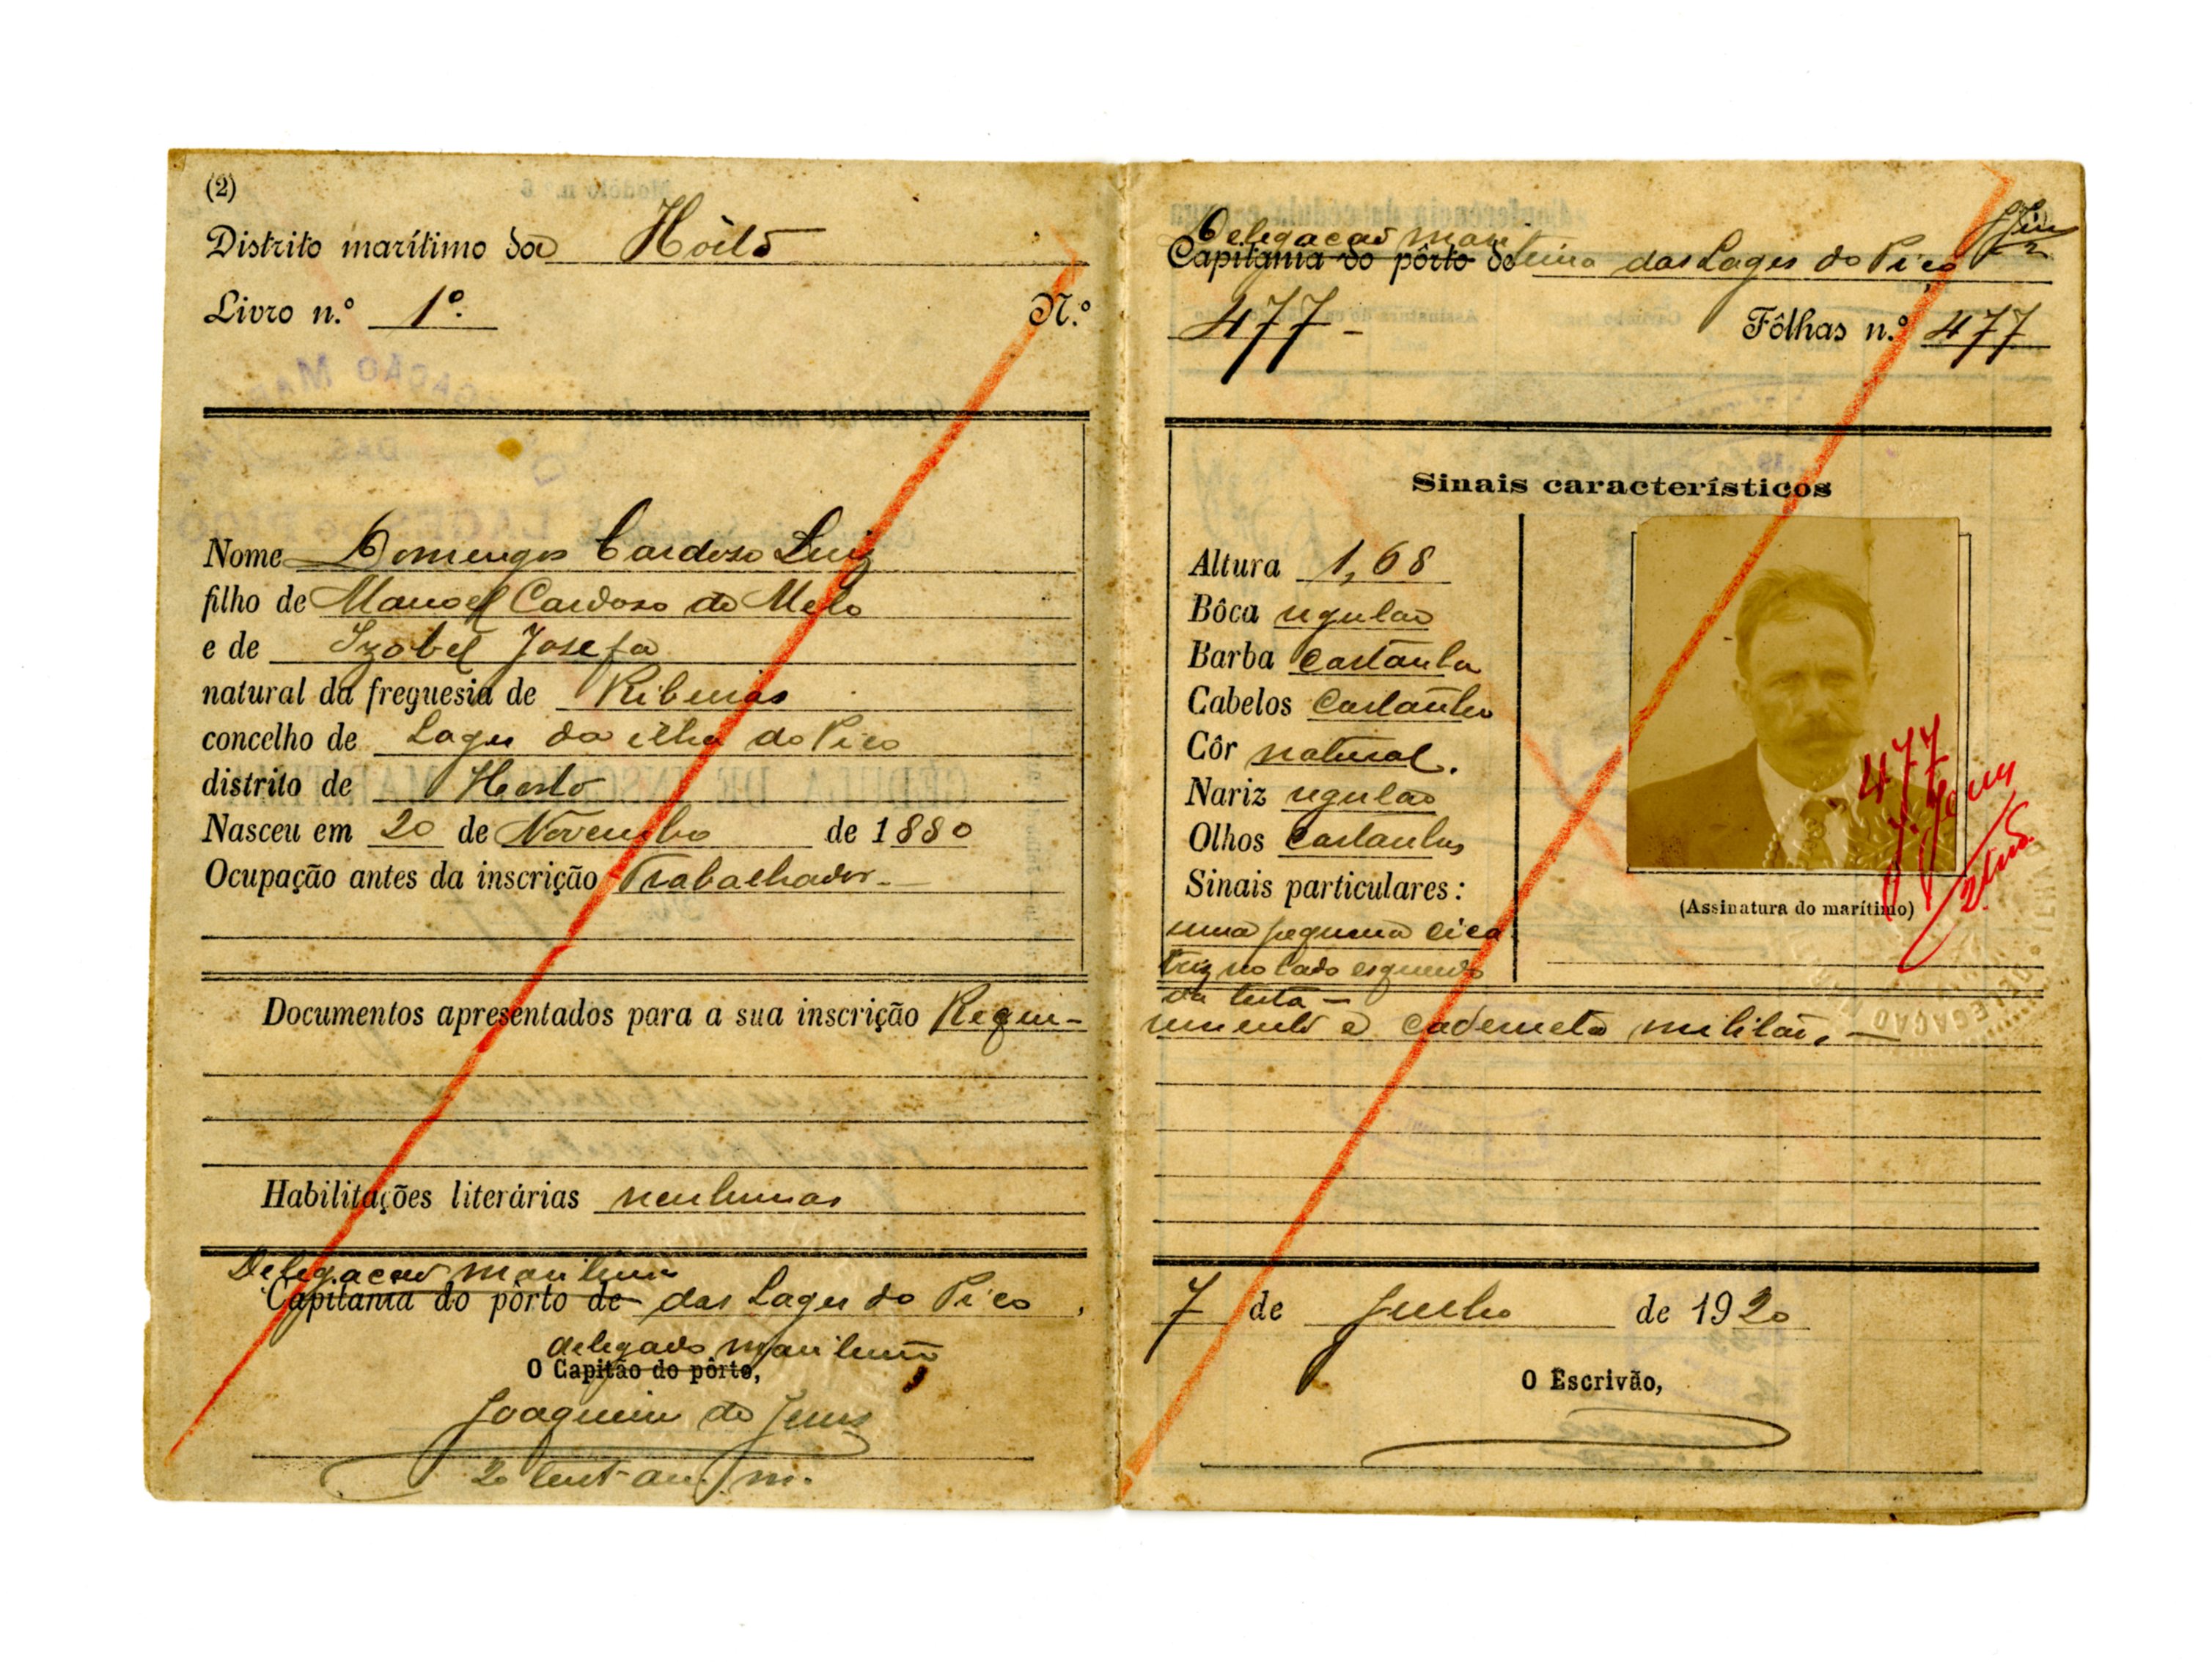 (2)
Distrito marítimo da Horta
Livro n.º 1º. N.º
Nome Domingos Cardoso Luiz
filho de Manoel Cardoso de Melo
e de Izabel Josefa
natural da freguesia de Ribeiras
concelho de Lages da ilha do Pico
distrito de Horta
Nasceu em 20 de Novembro de 1880
Ocupação antes da inscrição Trabalhador.
Documentos apresentados para a sua inscrição Requi-
Habilitações literárias nenhumas
Delegacao maritima
Capitania do pôrto de das Lages do Pico,
delegado maritimo
O Capitão do pôrto,
Joaquim de Jesus
2º tent. au. m.
Delegacao mari
Capitania do pôrto de tima das Lages do Pico
477 - Fôlhas n.º 477
Sinais característicos
Altura 1,68
Bôca regular
Barba Castanha
Cabelos Castanho
Côr natural.
Nariz regular
Olhos Castanhos
Sinais particulares:
uma pequena cica
triz no lado esquerdo
da testa -
477
J. Jesus
2º tent.
(Assinatura do marítimo)
rimento e caderneta militar. -
7 de Junho de 1920
O Escrivão,